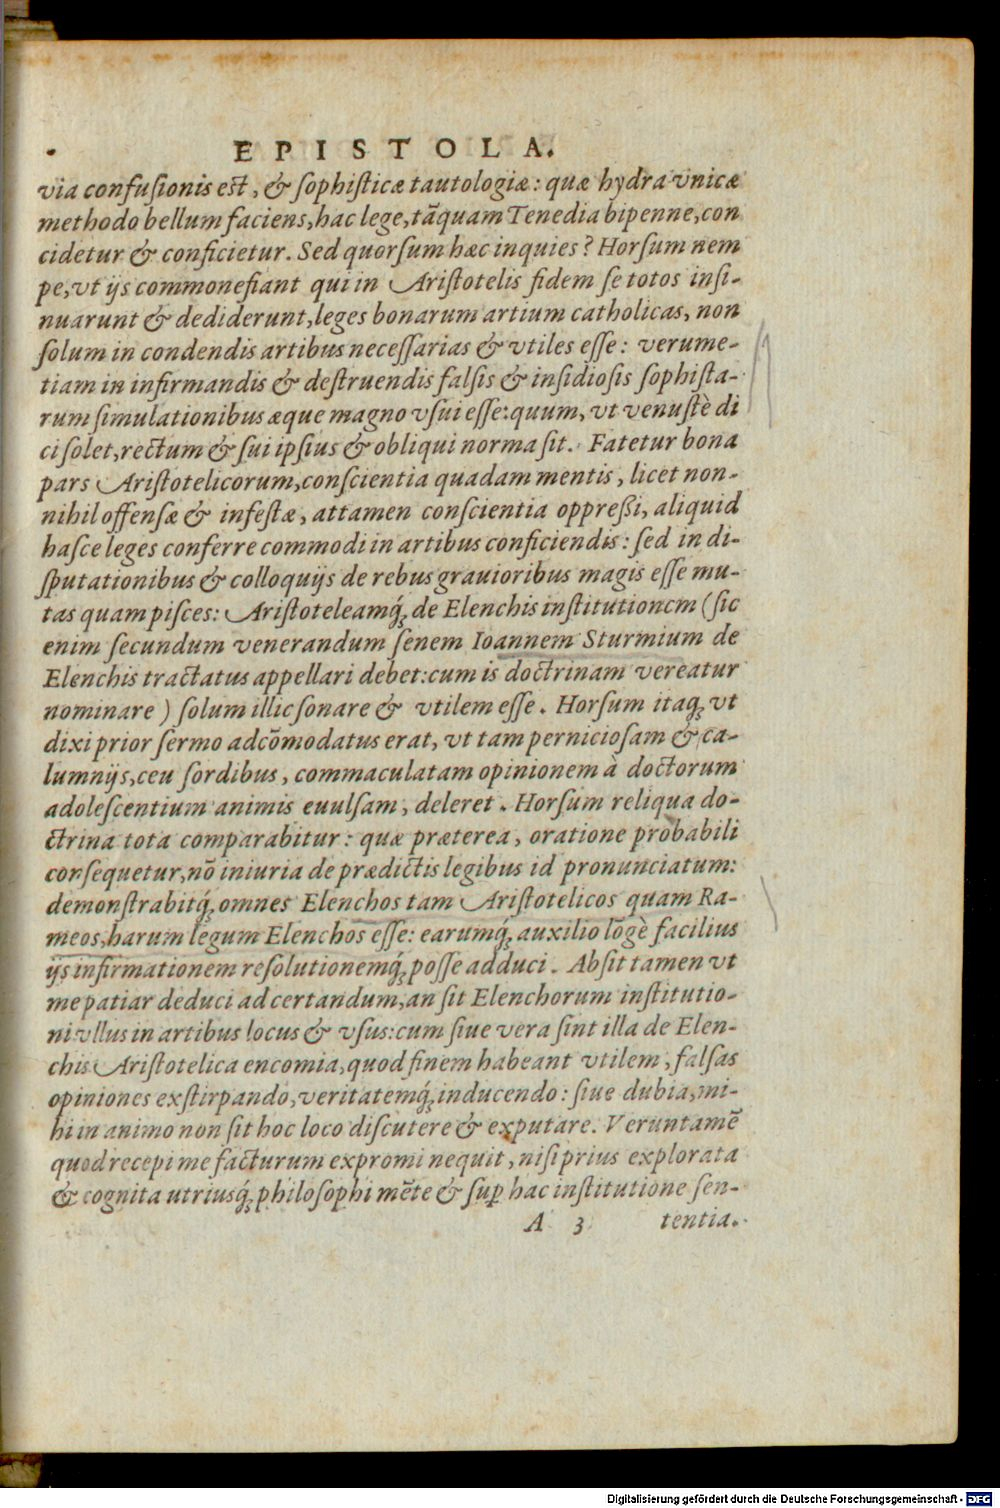 EPISTOLA.
via confusionis est, & sophisticæ tautologiæ: quæ hydra vnicæ
methodo bellum faciens, hac lege, tãquam Tenedia bipenne, con
cidetur & conficietur. Sed quorsum hæc inquies? Horsum nem
pe, vt ijs commonefiant qui in Aristotelis fidem se totos insi-
nuarunt & dediderunt, leges bonarum artium catholicas, non
solum in condendis artibus necessarias & vtiles esse: verume-
tiam in infirmandis & destruendis falsis & insidiosis sophista-
rum simulationibus æque magno vsui esse: quum, vt venustè di
ci solet, rectum & sui ipsius & obliqui norma sit. Fatetur bona
pars Aristotelicorum, conscientia quadam mentis, licet non-
nihil offensæ & infestæ, attamen conscientia oppreßi, aliquid
hasce leges conferre commodi in artibus conficiendis: sed in di-
sputationibus & colloquijs de rebus grauioribus magis esse mu-
tas quam pisces: Aristoteleamq́; de Elenchis institutionem (sic
enim secundum venerandum senem Ioannem Sturmium de
Elenchis tractatus appellari debet: cum is doctrinam vereatur
nominare) solum illic sonare & vtilem esse. Horsum itaq; vt
dixi prior sermo adcõmodatus erat, vt tam perniciosam & ca-
lumnijs, ceu sordibus, commaculatam opinionem à doctorum
adolescentium animis euulsam, deleret. Horsum reliqua do-
ctrina tota comparabitur: quæ præterea, oratione probabili
consequetur, nõ iniuria de prædictis legibus id pronunciatum:
demonstrabitq́; omnes Elenchos tam Aristotelicos quam Ra-
meos, harum legum Elenchos esse: earumq́; auxilio lõgè facilius
ijs infirmationem resolutionemq́; posse adduci. Absit tamen vt
me patiar deduci ad certandum, an sit Elenchorum institutio-
ni vllus in artibus locus & vsus: cum siue vera sint illa de Elen-
chis Aristotelica encomia, quod finem habeant vtilem, falsas
opiniones exstirpando, veritatemq́; inducendo: siue dubia, mi-
hi in animo non sit hoc loco discutere & exputare. Veruntamẽ
quod recepi me facturum expromi nequit, nisi prius explorata
& cognita utriusq́; philosophi mẽte & sup̱ hac institutione sen-
A 3 tentia.
Digitalisierung gefördert durch die Deutsche Forschungsgemeinschaft - DFG